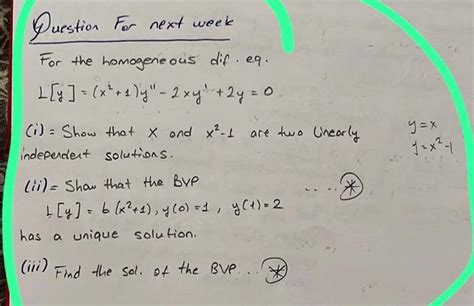 Question For next week
For the homogeneous dif. eq.
L[y] = (x²+1)y'' - 2xy' + 2y = 0
(i) = Show that x and x²-1 are two linearly
independent solutions.
y = x
y = x²-1
(ii) = Show that the BVP ....(*)
L[y] = 6(x²+1), y(0)=1, y(1)=2
has a unique solution.
(iii) Find the sol. of the BVP...(*)